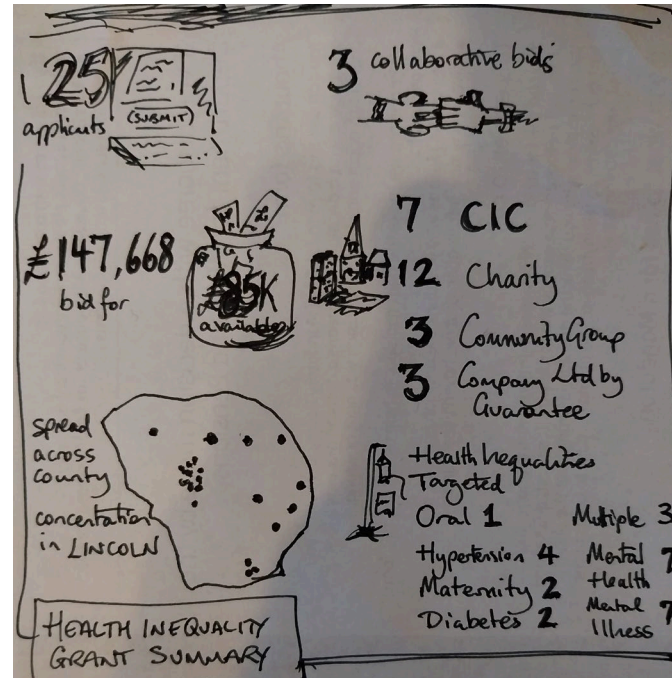 25
applicants
(SUBMIT)
3 collaborative bids
£147,668
bid for
£85K
available
7 CIC
12 Charity
3 Community Group
3 Company Ltd by
Guarantee
spread
across
county
concentration
in LINCOLN
Health Inequalities
Targeted
Oral 1
Hypertension 4
Maternity 2
Diabetes 2
Multiple 3
Mental 7
Health
Mental 7
Illness
HEALTH INEQUALITY
GRANT SUMMARY